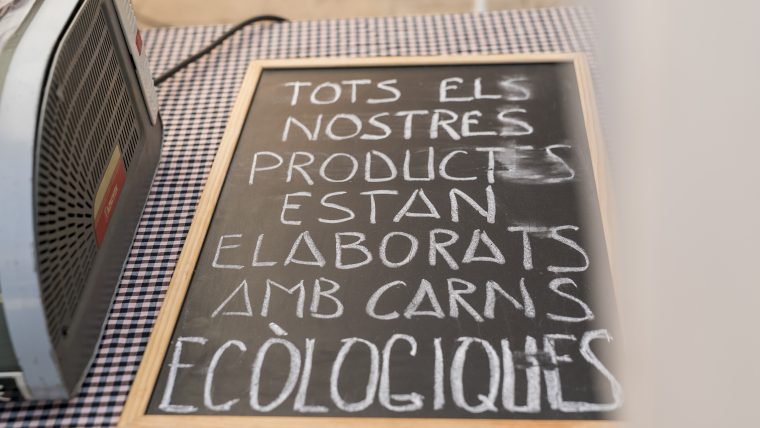 TOTS ELS
NOSTRES
PRODUCTES
ESTAN
ELABORATS
AMB CARNS
ECÒLOGIQUES